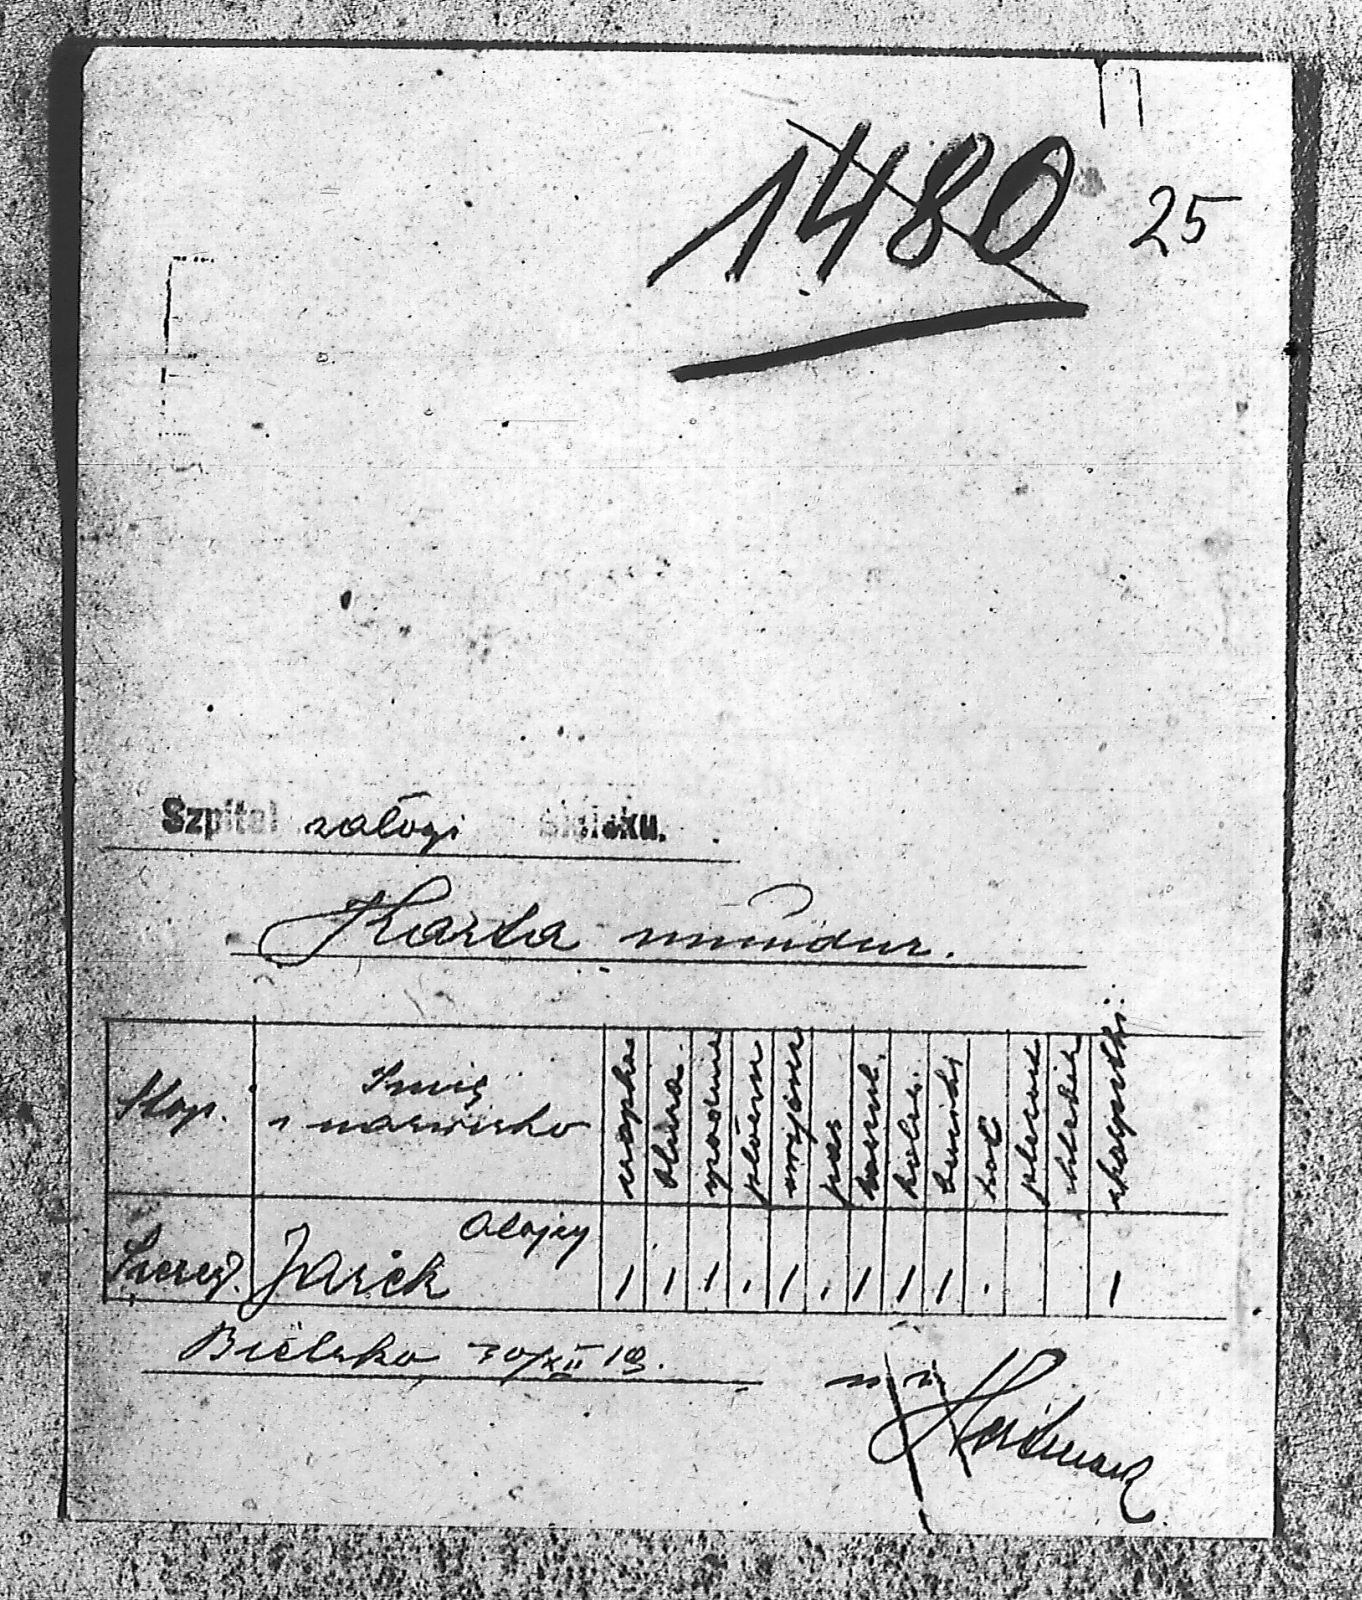 1480
25
Szpital załogi Bielsku.
Karta mundur.
Stop. Imię i nazwisko czapka bluza spodnie płaszcz pas koszul. kales. koc
Szereg. Jarek Alojzy 1 1 1 1 1 1 1 1 1 1 1
Bielsko, 30/XII 19.